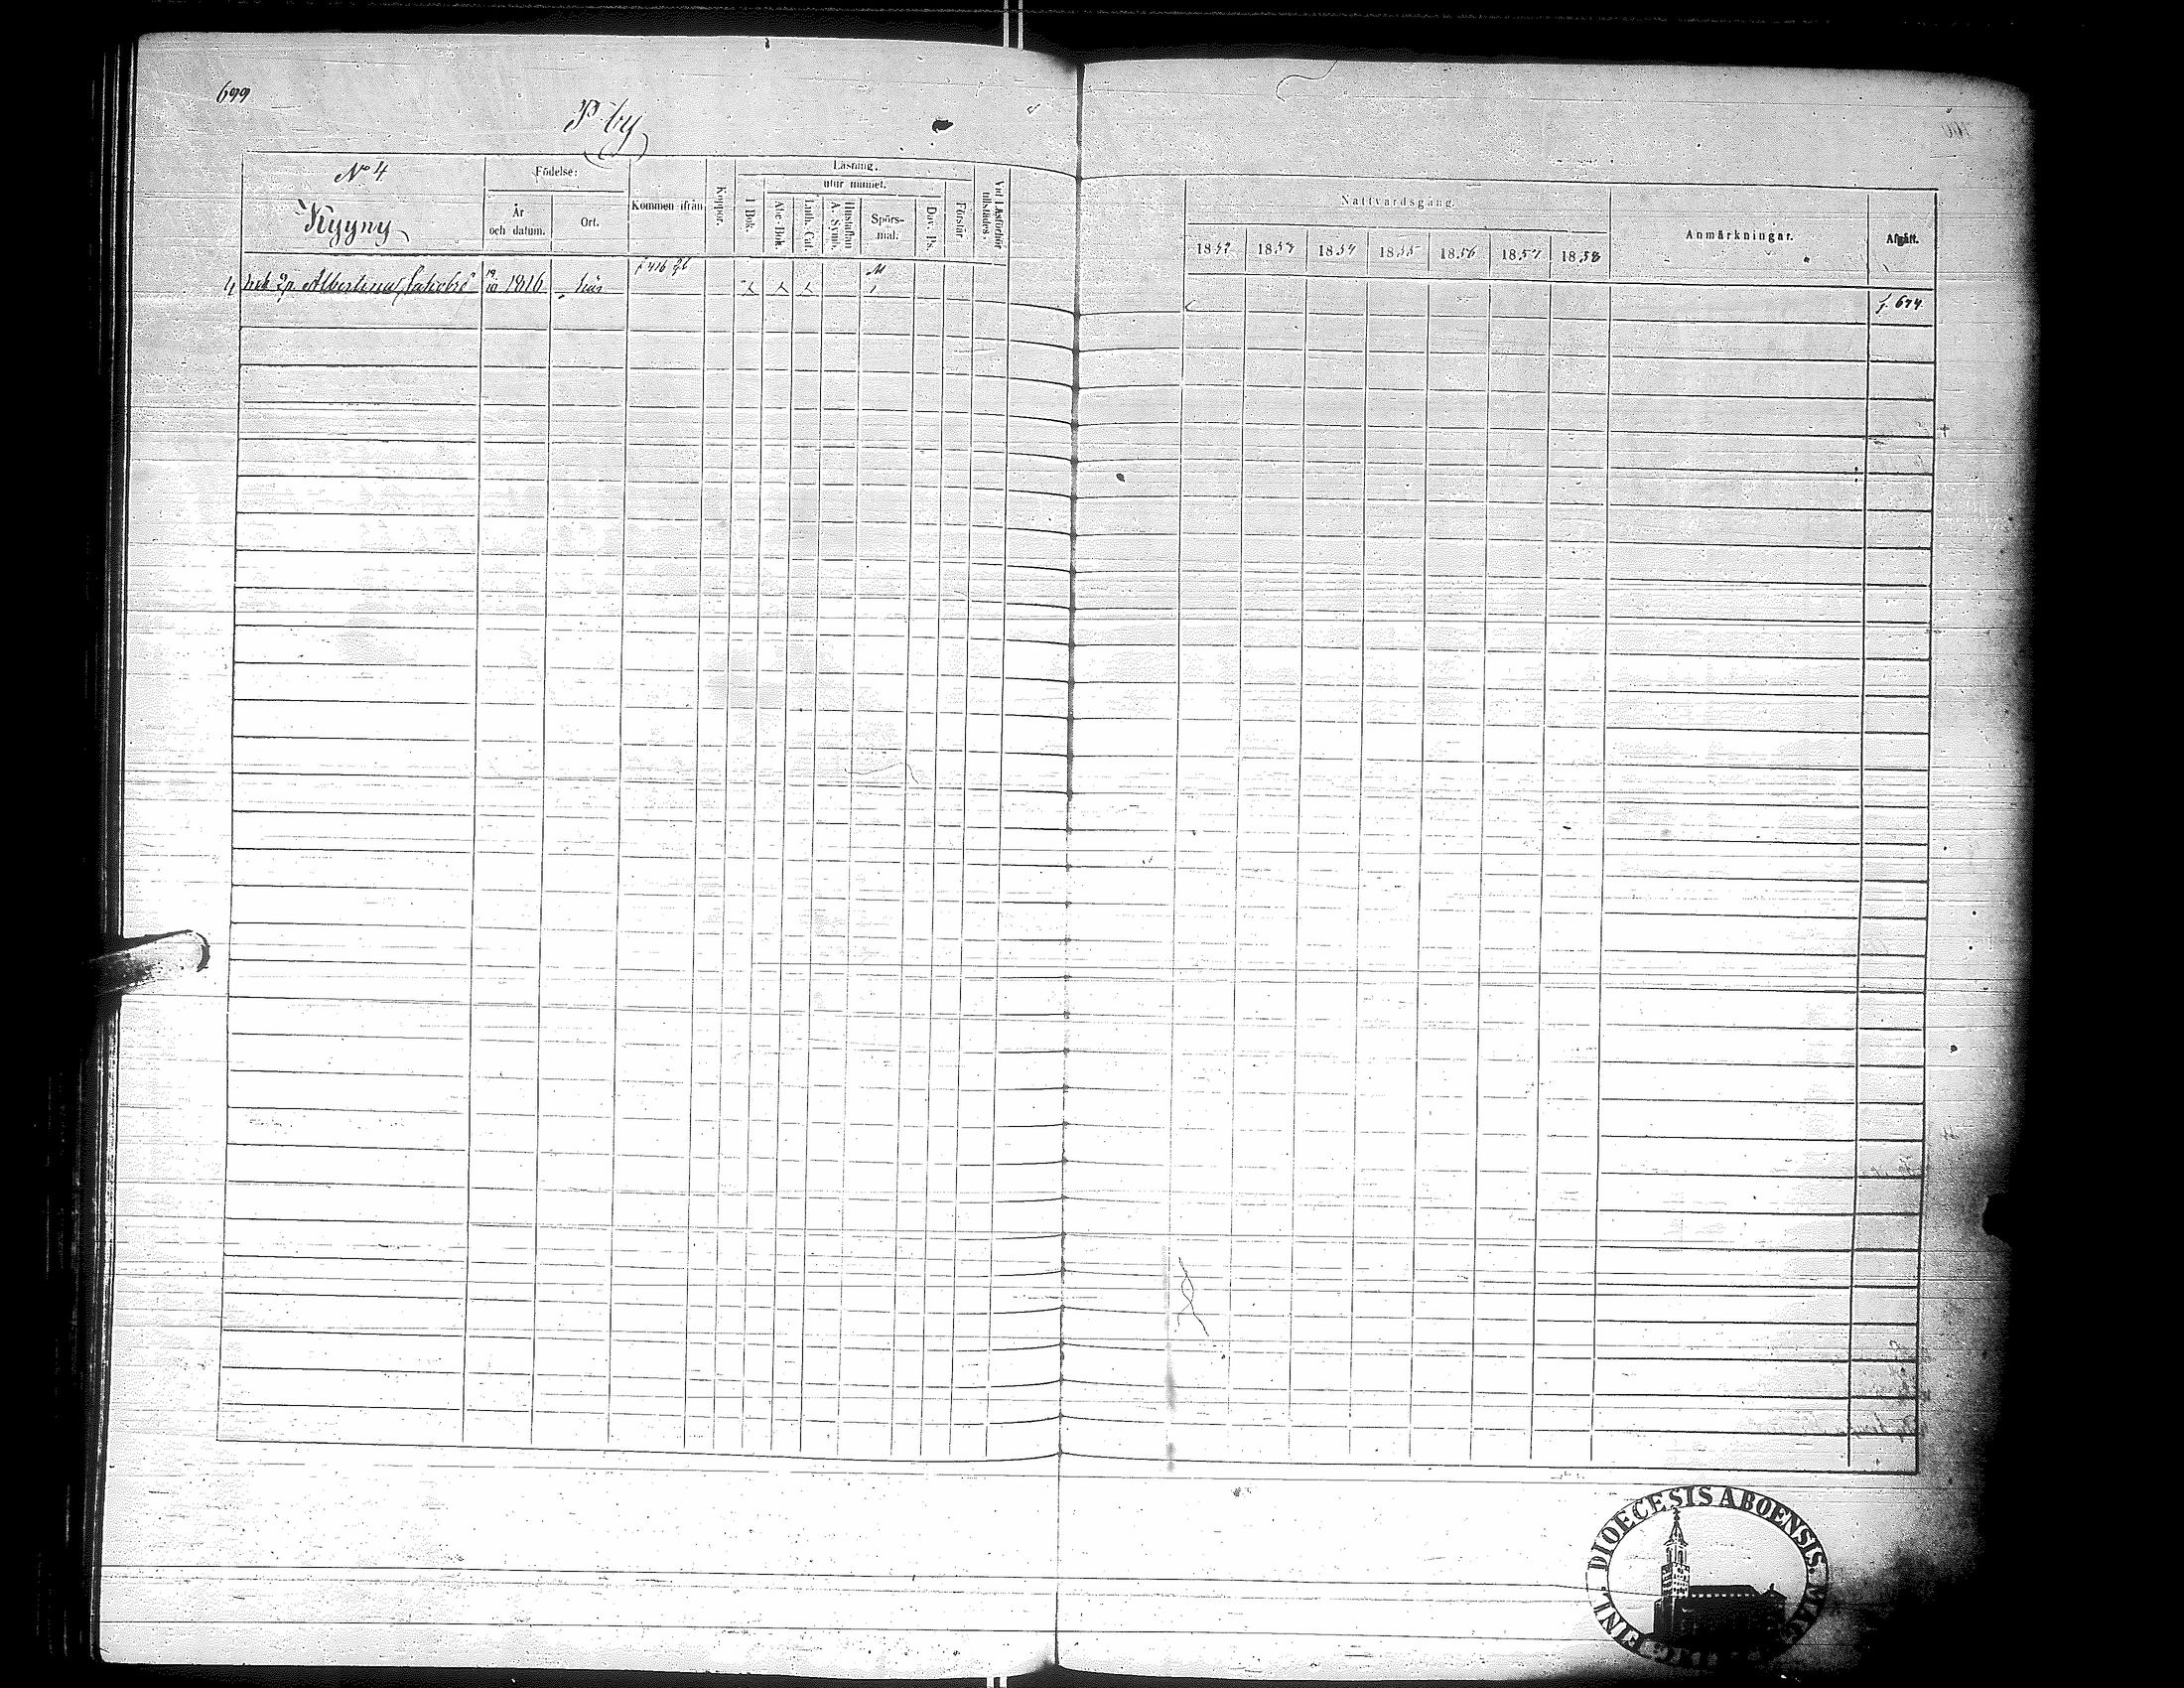 699
P by
No 4
Kyyny
Födelse:
År och datum.
Ort.
Kommen ifrån
Koppor.
Läsning.
I Bok.
utur minnet.
Abc-Bok.
Luth. Cat.
Hustaflan A. Symb.
Spörsmål.
Dav. Ps.
Förstår.
Vid Läsförhör tillstädes.
Nattvardsgång.
1852 1853 1854 1855 1856 1857 1858
Anmärkningar.
Afgått.
Albertina 19/10 1816 f 416
f. 674.
DIOECESIS ABOENSIS. MAG. FINL.